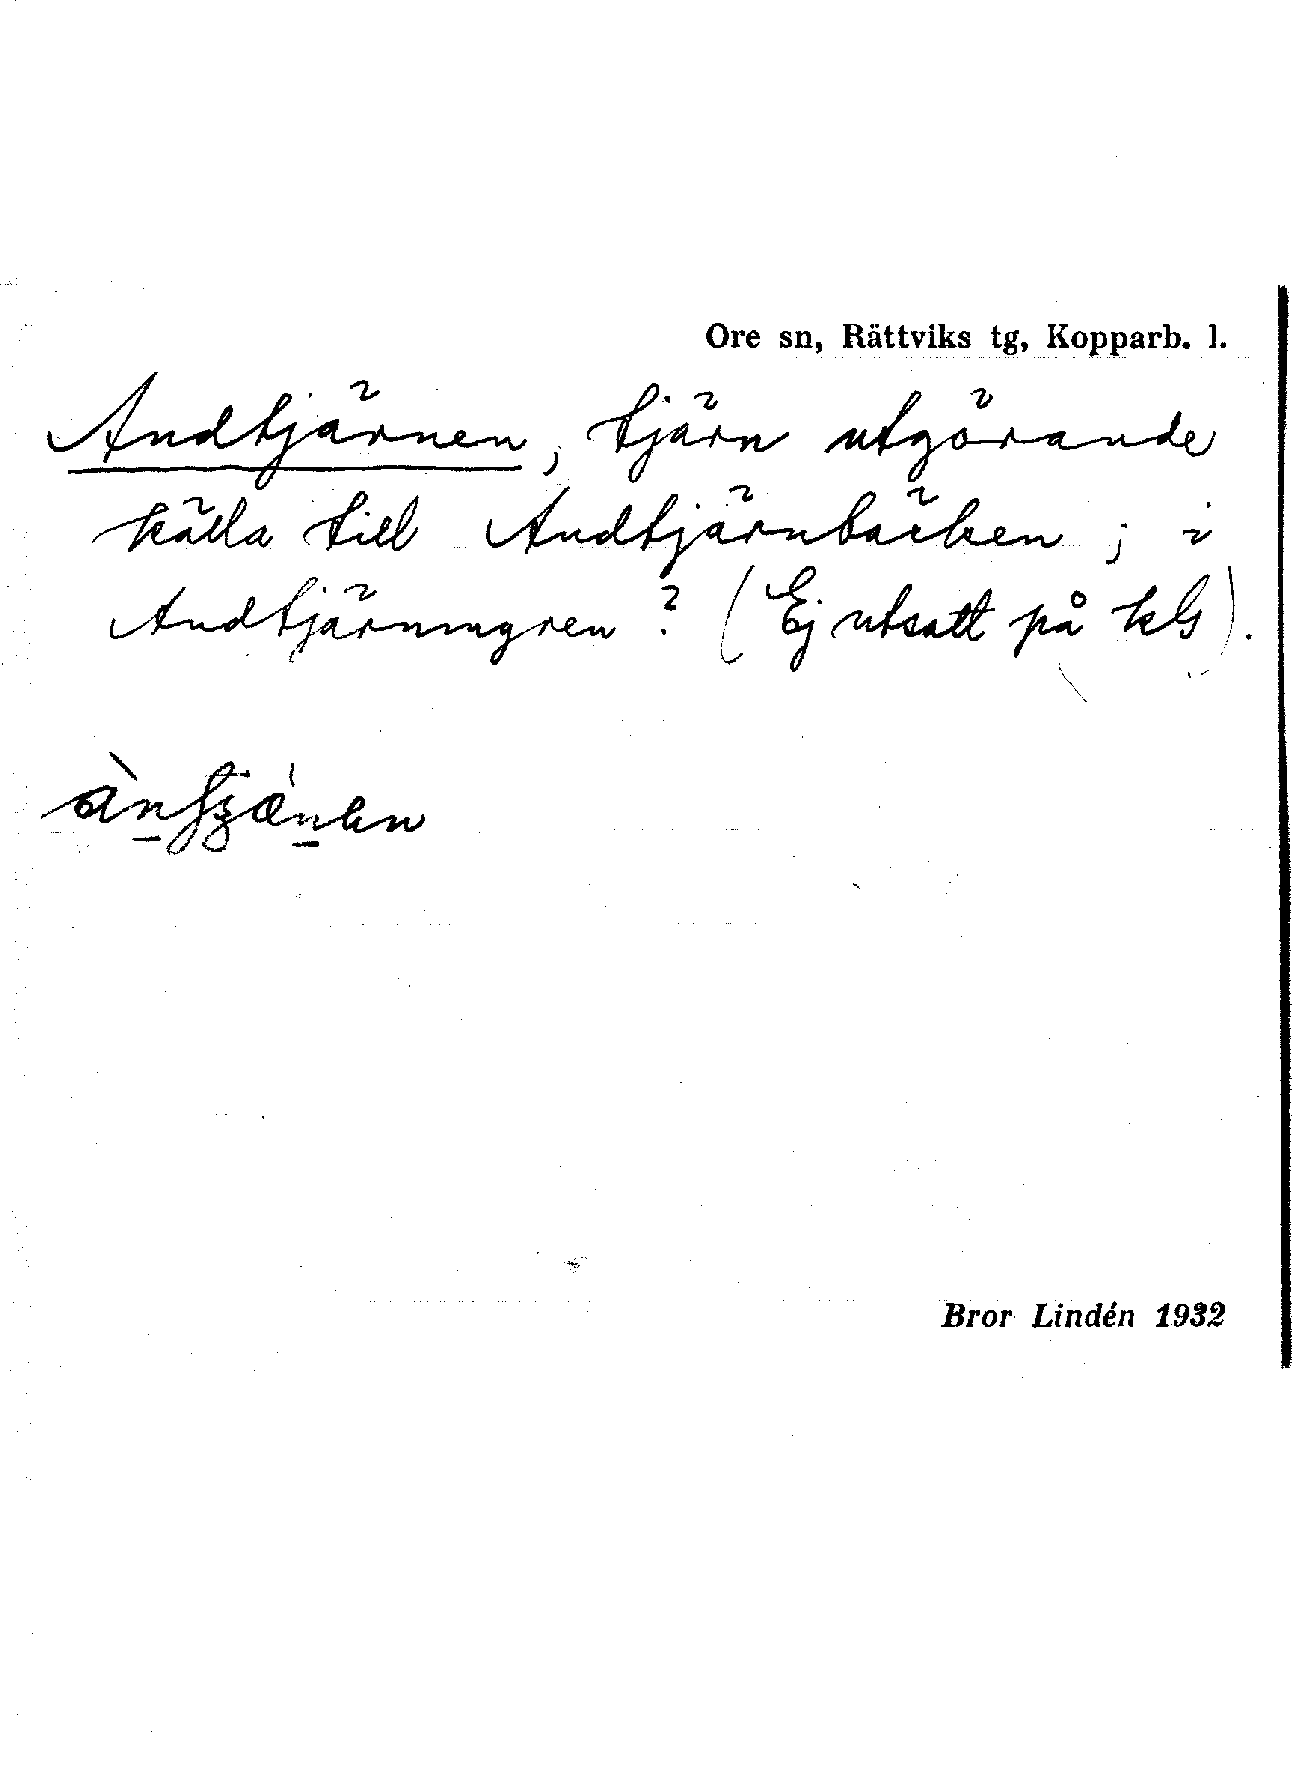 Ore sn, Rättviks tg, Kopparb. l.
Andtjärnen, tjärn utgörande
källa till Andtjärnbäcken; i
Andtjärnmyren? (Ej utsatt på kls).
Bror Lindén 1932